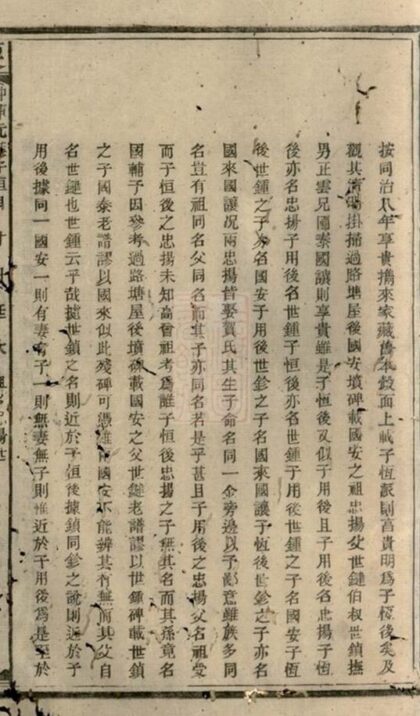 按同治八年享貴攜來家藏舊本殼面上載子恆派則富貴明爲子恆後矣及
觀其清場掛掃過路塘屋後國安墳碑載國安之祖忠揚父世鏈伯叔世鎮撫
男正雲兄國泰國讓則享貴雖是子恆後又似子用後且子用後名忠揚子恆
後亦名忠揚子用後名世鍾子恆後亦名世鍾子用後世鍾之子名國安子恆
後世鍾之子亦名國安子用後世鉁之子名國來國讓子恆後世鉁之子亦名
國來國讓況兩忠揚皆娶賀氏其生子命名同一金旁邊以予鄙意雖族多同
名豈有祖同名父同名而其子亦同名若是乎甚且子用後之忠揚父名祖堂
而子恆後之忠揚未知高曾祖考爲誰子恆後忠揚之子無其名而其孫竟名
國輔予因參考過路塘屋後墳碑載國安之父世鏈老譜謬以世鍾碑載世鎮
之子國泰老譜謬以國來似此殘碑可憑雖國安不能辨其有無而其父自
名世鏈也世鍾云乎哉據世鎮之名則近於子恆後據鎮同鉁之說則近於子
用後據同一國安一則有妻有子一則無妻無子則惟近於子用後爲是至於